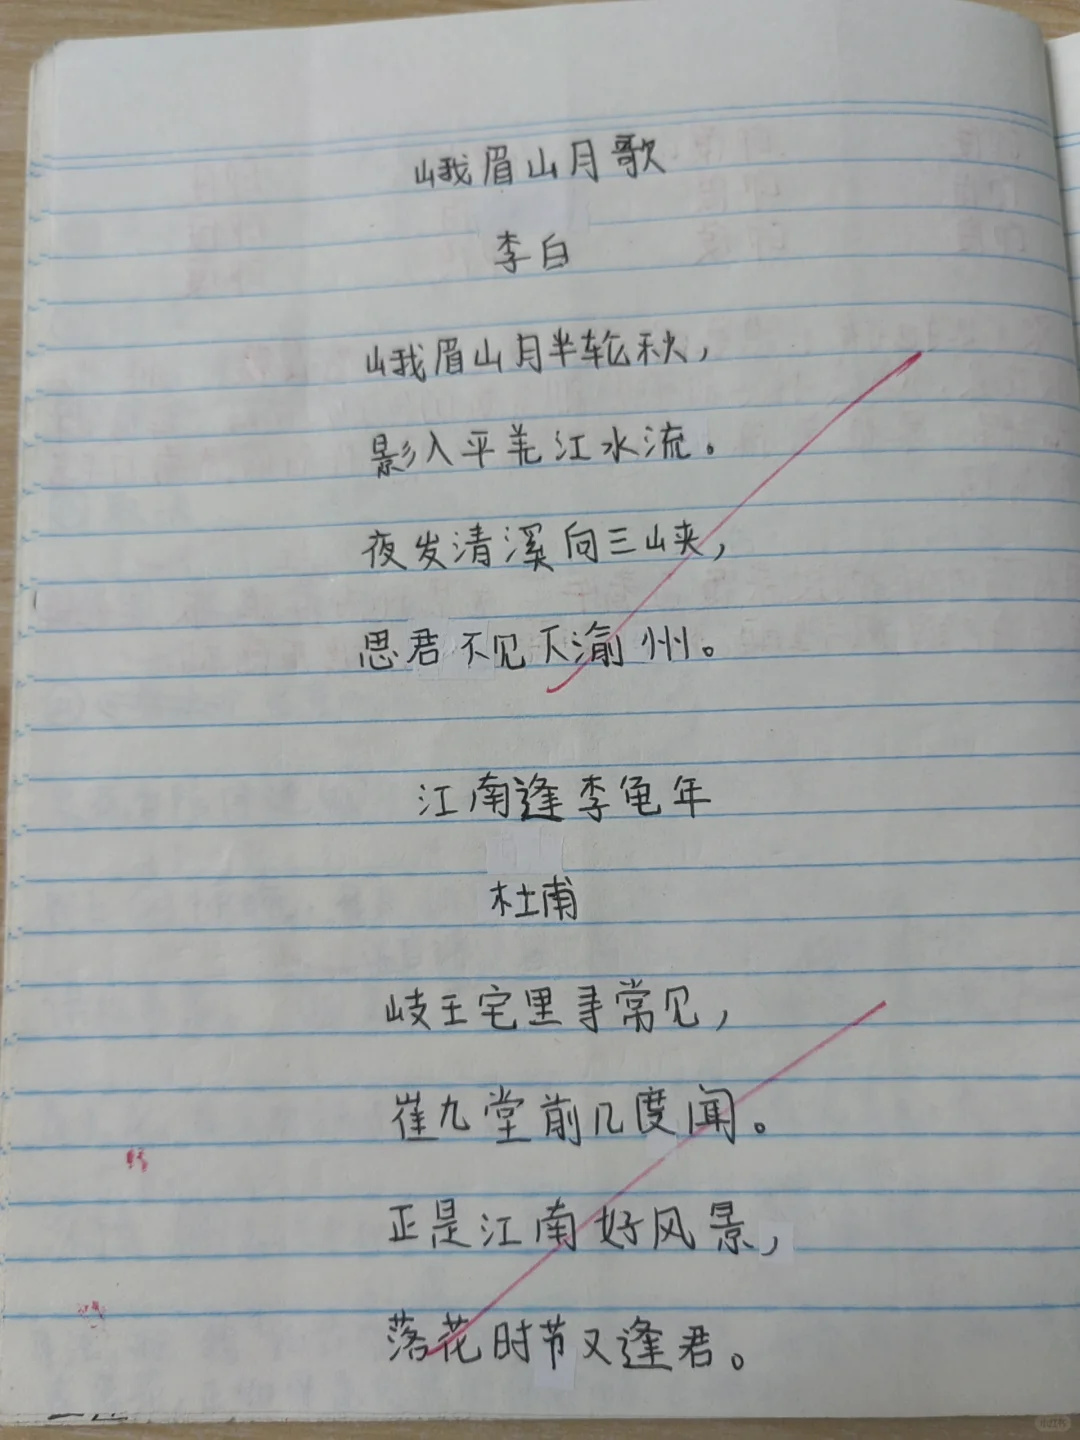 峨眉山月歌
李白
峨眉山月半轮秋，
影入平羌江水流。
夜发清溪向三峡，
思君不见下渝州。
江南逢李龟年
杜甫
岐王宅里寻常见，
崔九堂前几度闻。
正是江南好风景，
落花时节又逢君。
小红书